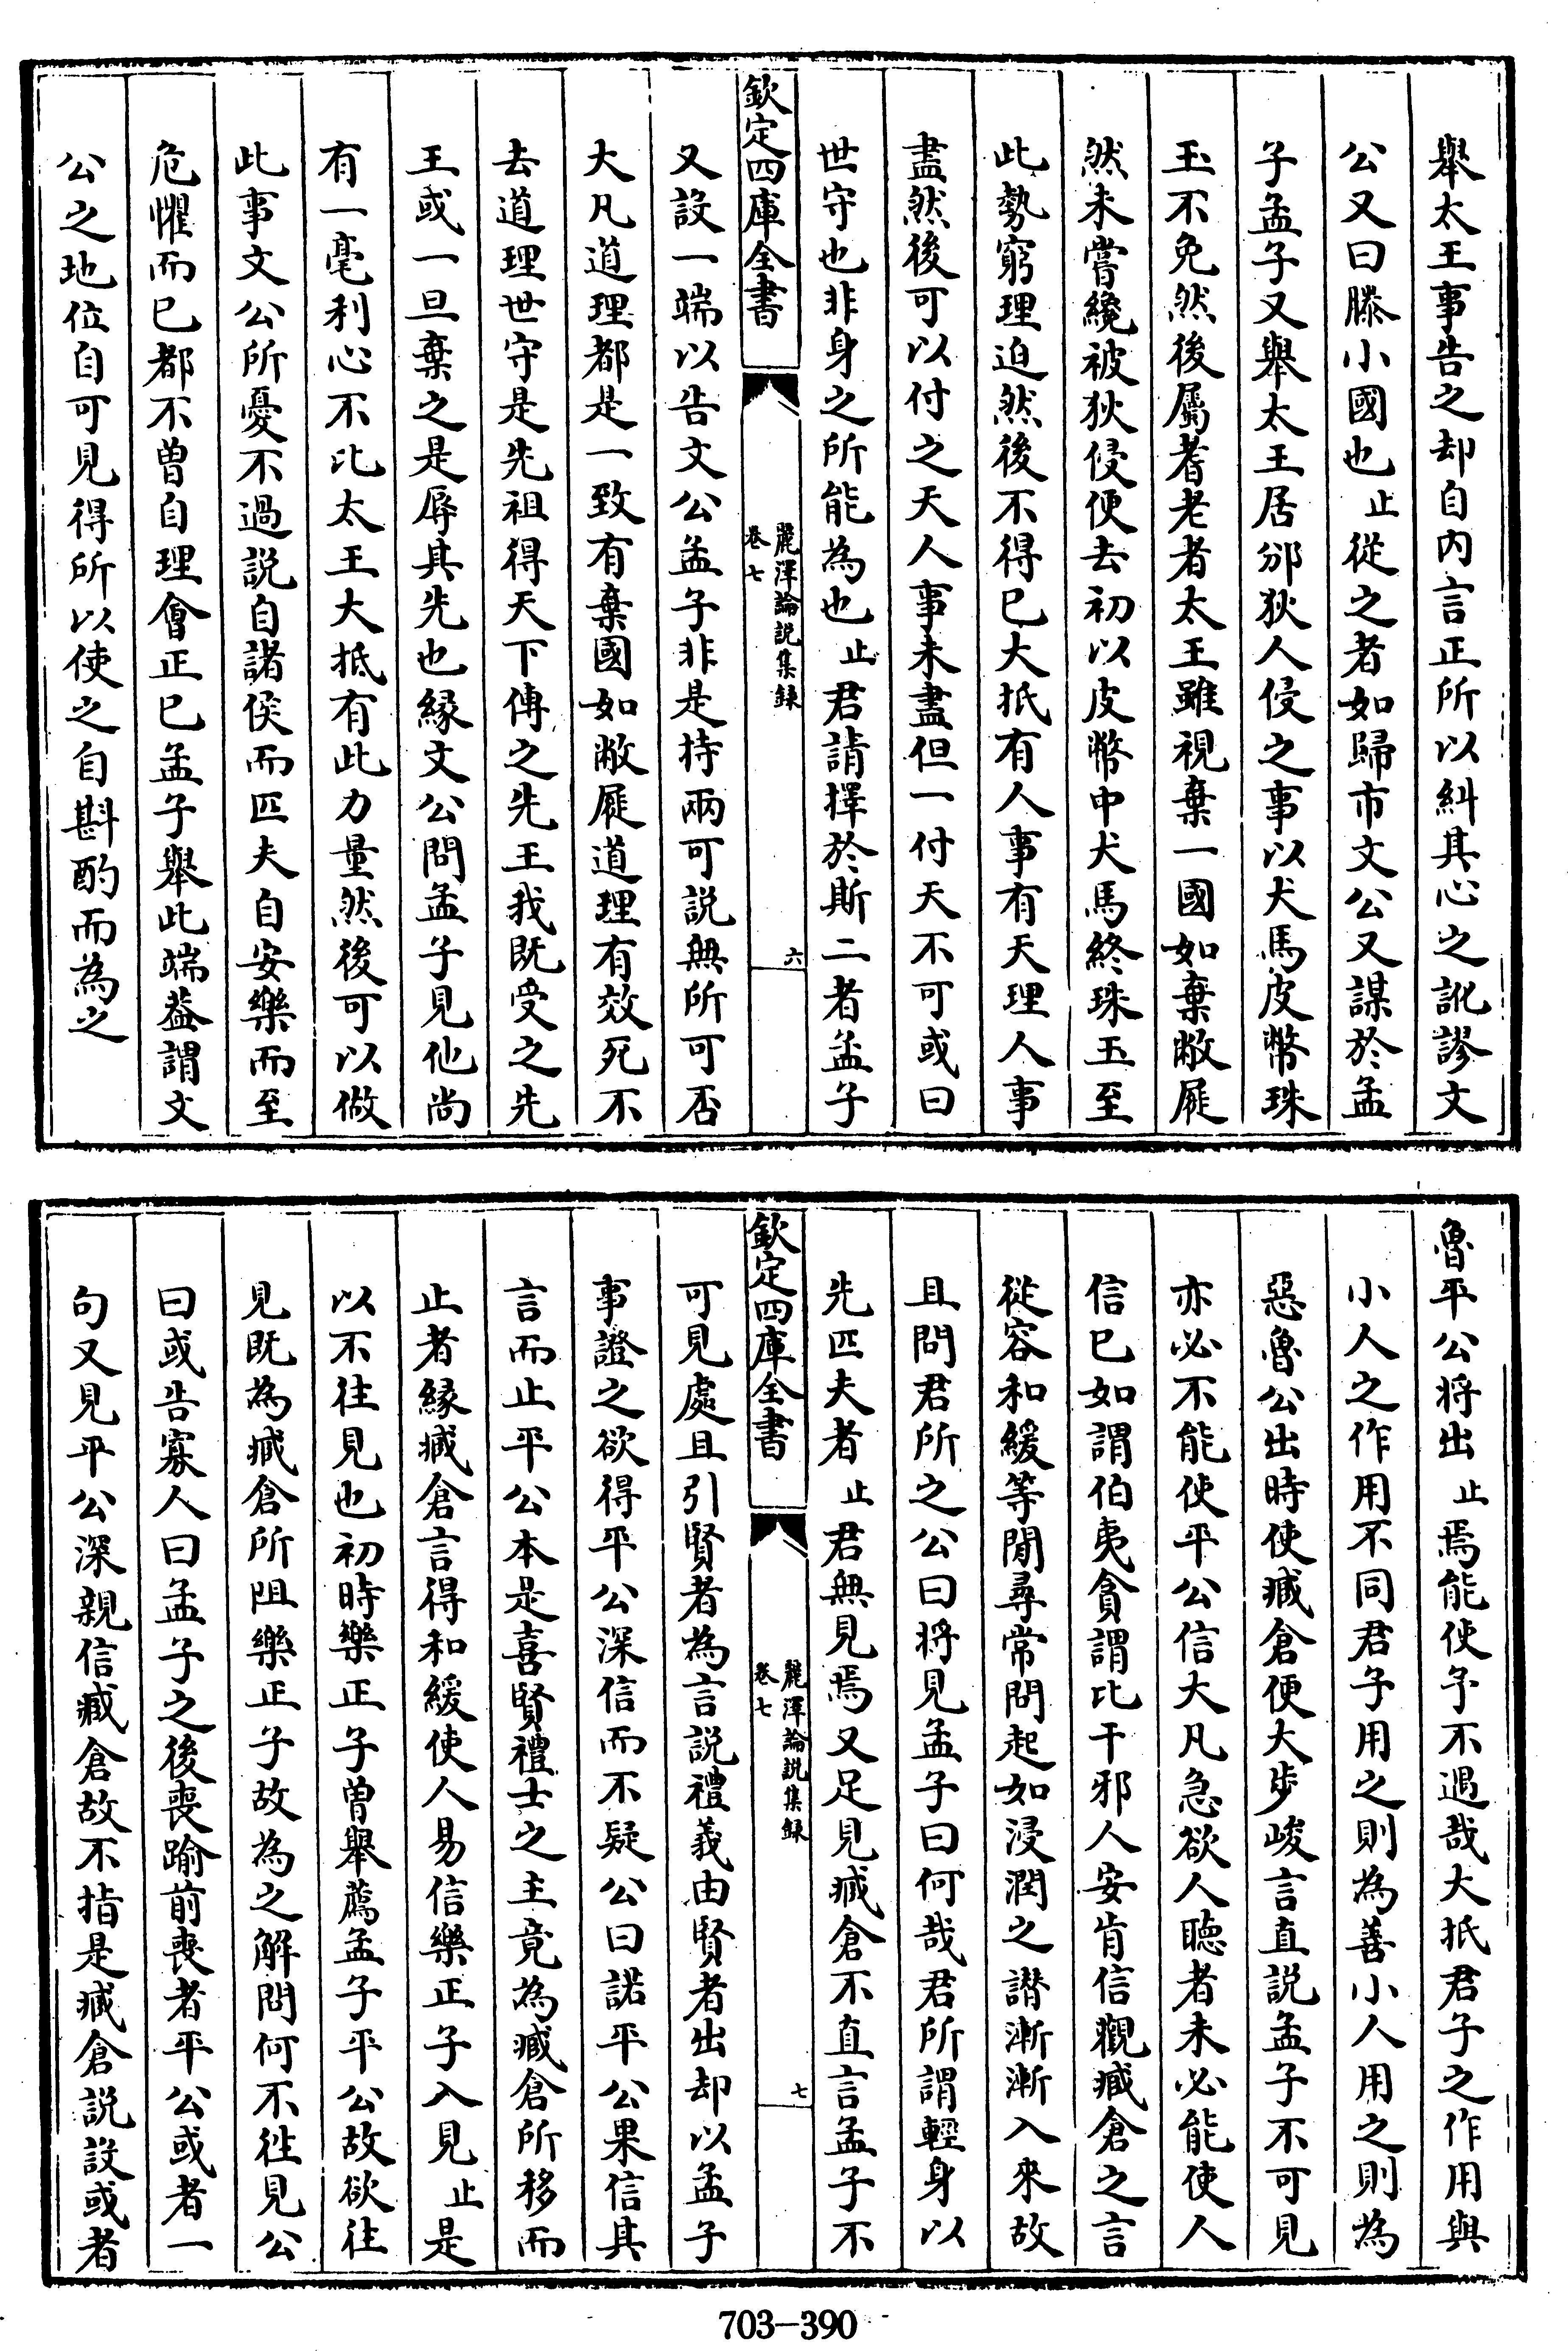 舉太王事告之却自内言正所以糾其心之訛謬文
公又曰滕小國也止從之者如歸市文公又謀於孟
子孟子又舉太王居邠狄人侵之事以犬馬皮幣珠
玉不免然後屬耆老者太王雖視棄一國如棄敝屣
然未嘗纔被狄侵便去初以皮幣中犬馬終珠玉至
此勢窮理迫然後不得已大抵有人事有天理人事
盡然後可以付之天人事未盡但一付天不可或曰
世守也非身之所能為也止君請擇於斯二者孟子
欽定四庫全書
麗澤論説集録
卷七
六
又設一端以告文公孟子非是持兩可説無所可否
大凡道理都是一致有棄國如敝屣道理有效死不
去道理世守是先祖得天下傳之先王我既受之先
王或一旦棄之是辱其先也縁文公問孟子見他尚
有一毫利心不比太王大抵有此力量然後可以做
此事文公所憂不過説自諸侯而匹夫自安樂而至
危懼而已都不曽自理會正已孟子舉此端葢謂文
公之地位自可見得所以使之自斟酌而為之
魯平公将出止焉能使予不遇哉大抵君子之作用與
小人之作用不同君子用之則為善小人用之則為
惡魯公出時使臧倉便大步峻言直説孟子不可見
亦必不能使平公信大凡急欲人聴者未必能使人
信已如謂伯夷貪謂比干邪人安肯信觀臧倉之言
從容和緩等閒尋常問起如浸潤之譖漸漸入來故
且問君所之公曰将見孟子曰何哉君所謂輕身以
先匹夫者止君無見焉又足見臧倉不直言孟子不
欽定四庫全書
麗澤論説集録
卷七
七
可見處且引賢者為言説禮義由賢者出却以孟子
事證之欲得平公深信而不疑公曰諾平公果信其
言而止平公本是喜賢禮士之主竟為臧倉所移而
止者縁臧倉言得和緩使人易信樂正子入見止是
以不往見也初時樂正子曽舉薦孟子平公故欲往
見既為臧倉所阻樂正子故為之解問何不徃見公
曰或告寡人曰孟子之後喪踰前喪者平公或者一
句又見平公深親信臧倉故不指是臧倉説設或者
703-390